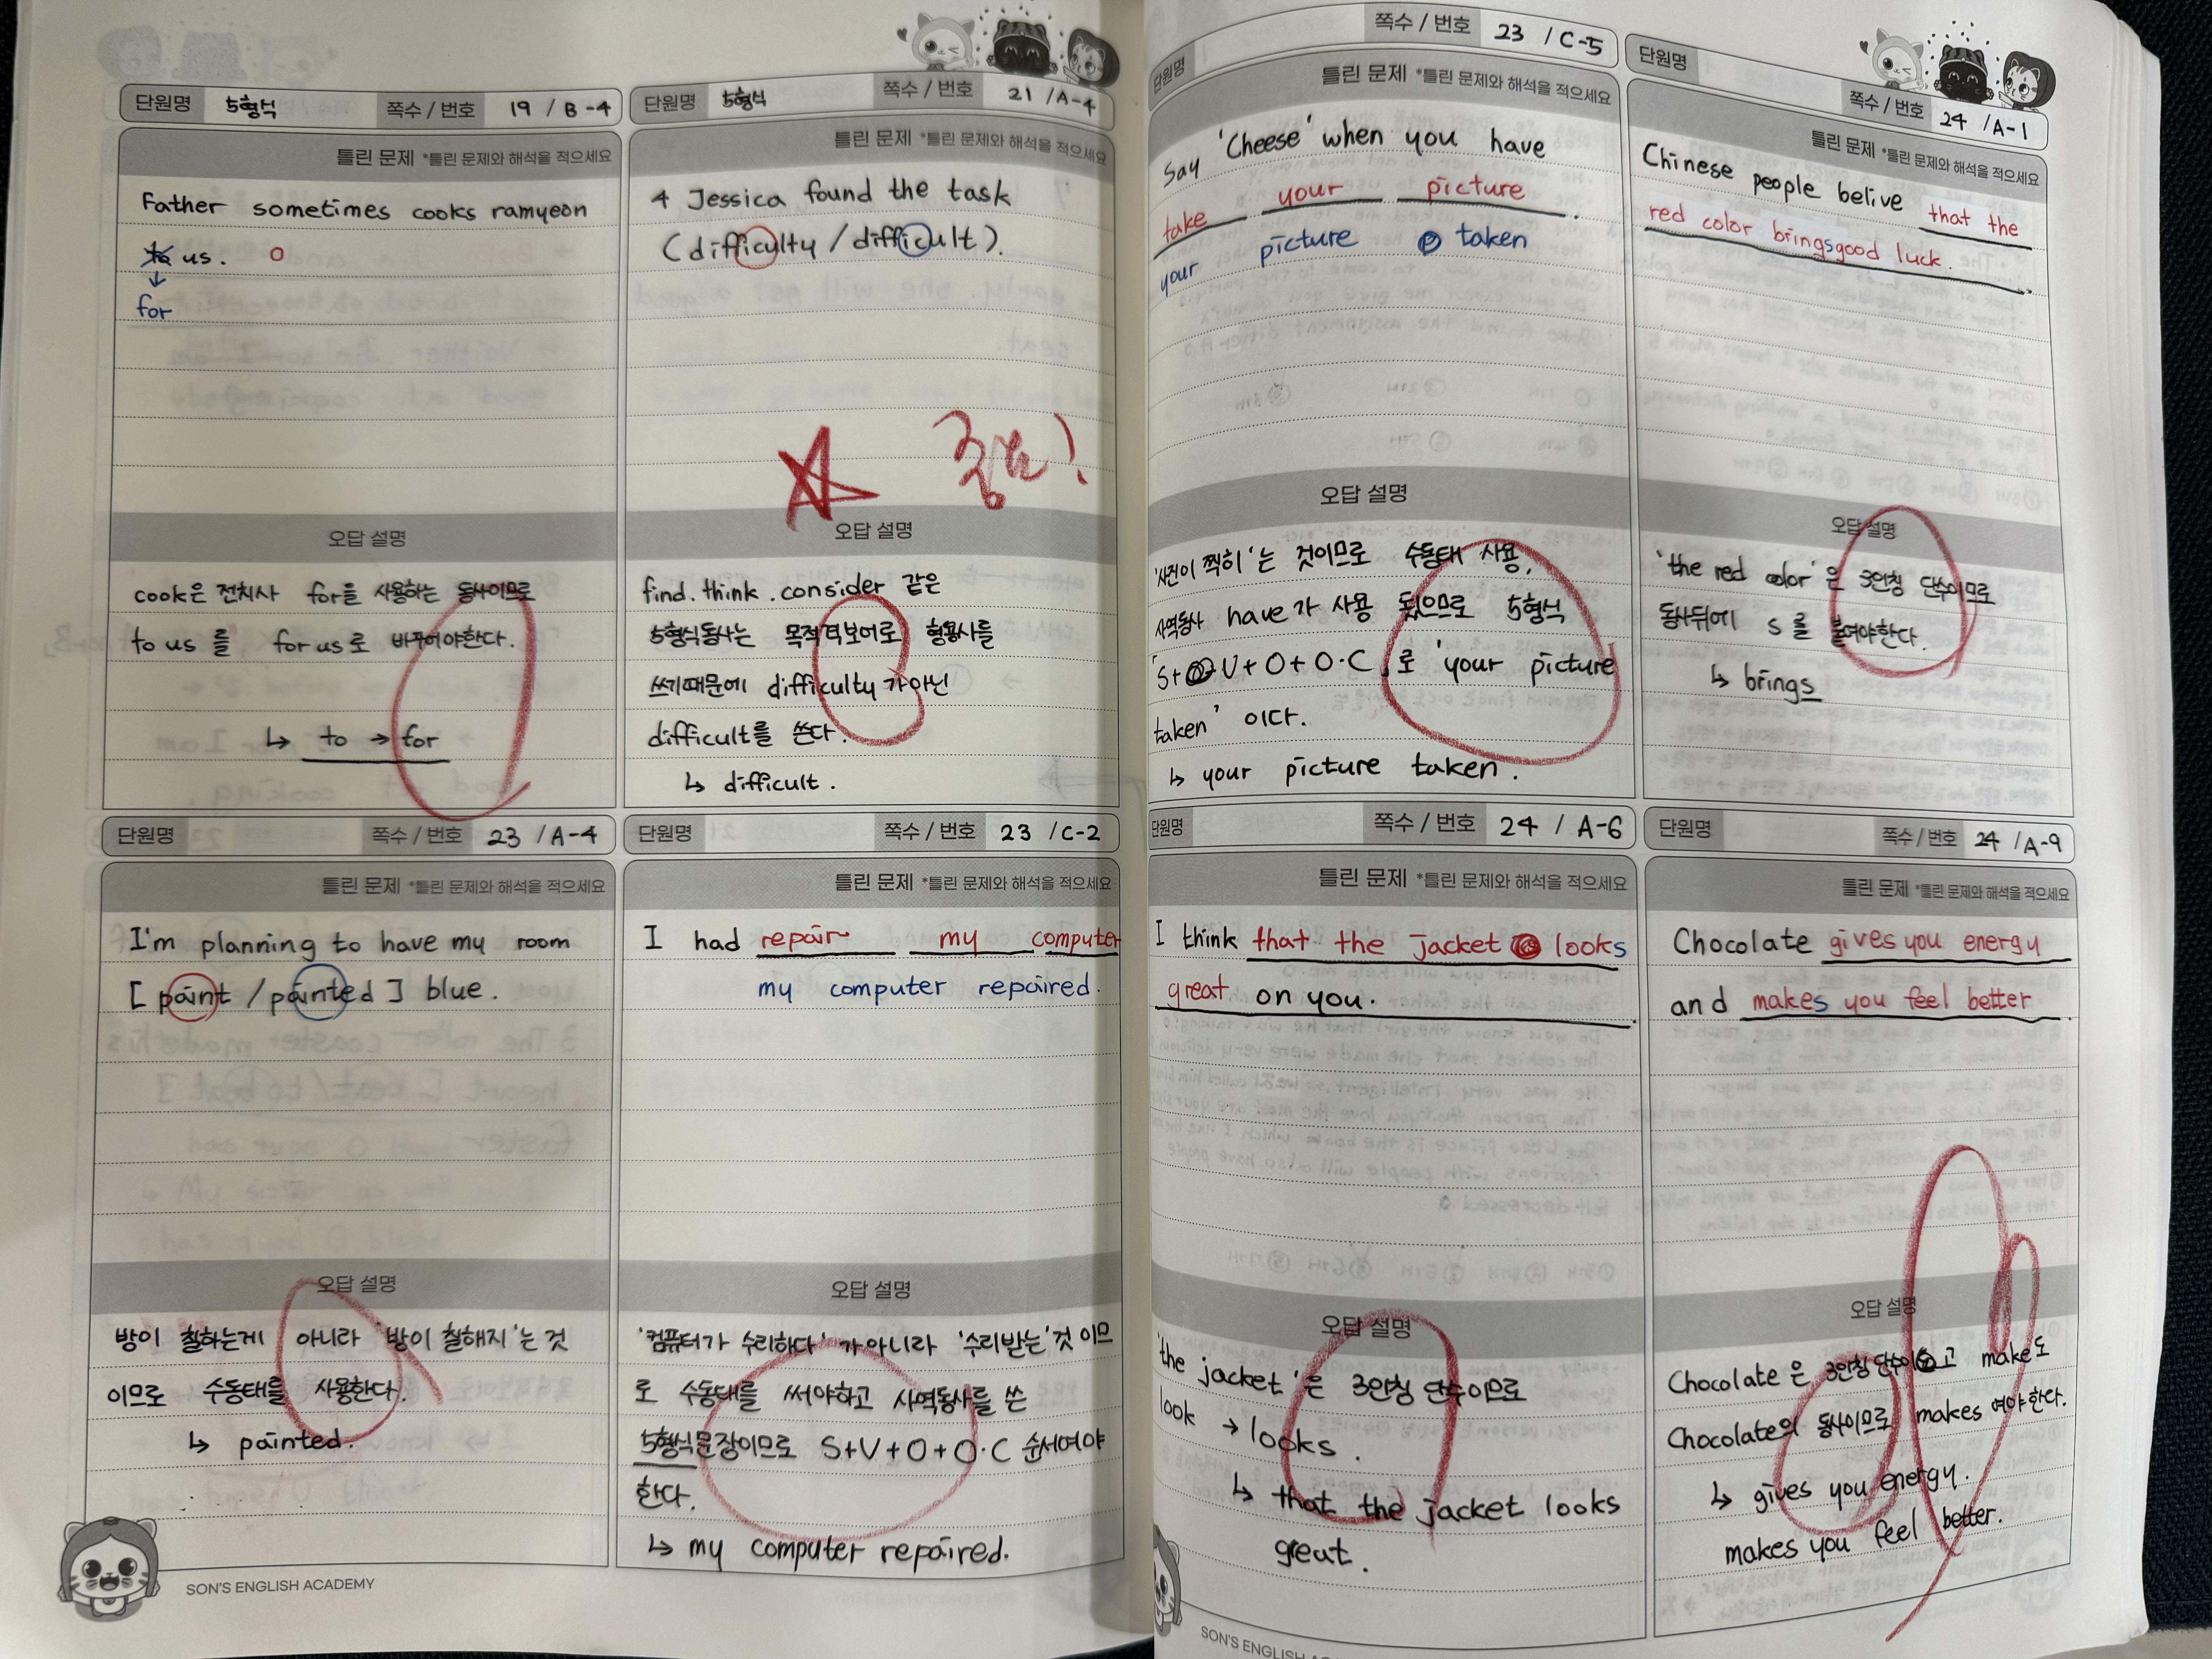 단원명 5형식 쪽수 / 번호 19 / B-4
틀린 문제 *틀린 문제와 해석을 적으세요
Father sometimes cooks ramyeon
to us. O
↓
for
오답 설명
cook은 전치사 for을 사용하는 동사이므로
to us 를 for us로 바꾸어야한다.
↳ to → for
단원명 5형식 쪽수 / 번호 21 / A-4
틀린 문제 *틀린 문제와 해석을 적으세요
4 Jessica found the task
(difficulty / difficult).
중요!
오답 설명
find. think. consider 같은
5형식동사는 목적격보어로 형용사를
쓰기때문에 difficulty가아닌
difficult를 쓴다.
↳ difficult.
단원명 쪽수 / 번호 23 / A-4
틀린 문제 *틀린 문제와 해석을 적으세요
I'm planning to have my room
[ paint / painted ] blue.
오답 설명
방이 칠하는게 아니라 '방이 칠해지'는 것
이므로 수동태를 사용한다.
↳ painted.
단원명 쪽수 / 번호 23 / C-2
틀린 문제 *틀린 문제와 해석을 적으세요
I had repair my computer
my computer repaired.
오답 설명
'컴퓨터가 수리하다'가아니라 '수리받는'것 이므
로 수동태를 써야하고 사역동사를 쓴
5형식문장이므로 S+V+O+O·C 순서여야
한다.
↳ my computer repaired.
SON'S ENGLISH ACADEMY
단원명 쪽수 / 번호 23 / C-5
틀린 문제 *틀린 문제와 해석을 적으세요
Say 'Cheese' when you have
take your picture.
your picture taken
오답 설명
'사진이 찍히'는 것이므로 수동태 사용,
사역동사 have가 사용 됐으므로 5형식
'S+V+O+O·C'로 'your picture
taken' 이다.
↳ your picture taken.
단원명 쪽수 / 번호 24 / A-1
틀린 문제 *틀린 문제와 해석을 적으세요
Chinese people belive that the
red color brings good luck.
오답 설명
'the red color'은 3인칭 단수이므로
동사뒤에 s를 붙여야한다.
↳ brings
단원명 쪽수 / 번호 24 / A-6
틀린 문제 *틀린 문제와 해석을 적으세요
I think that the jacket looks
great on you.
오답 설명
'the jacket'은 3인칭 단수이므로
look → looks.
↳ that the jacket looks
great.
단원명 쪽수 / 번호 24 / A-9
틀린 문제 *틀린 문제와 해석을 적으세요
Chocolate gives you energy
and makes you feel better.
오답 설명
Chocolate은 3인칭단수이고 make도
Chocolate의 동사이므로 makes 여야한다.
↳ gives you energy.
makes you feel better.
SON'S ENGLISH